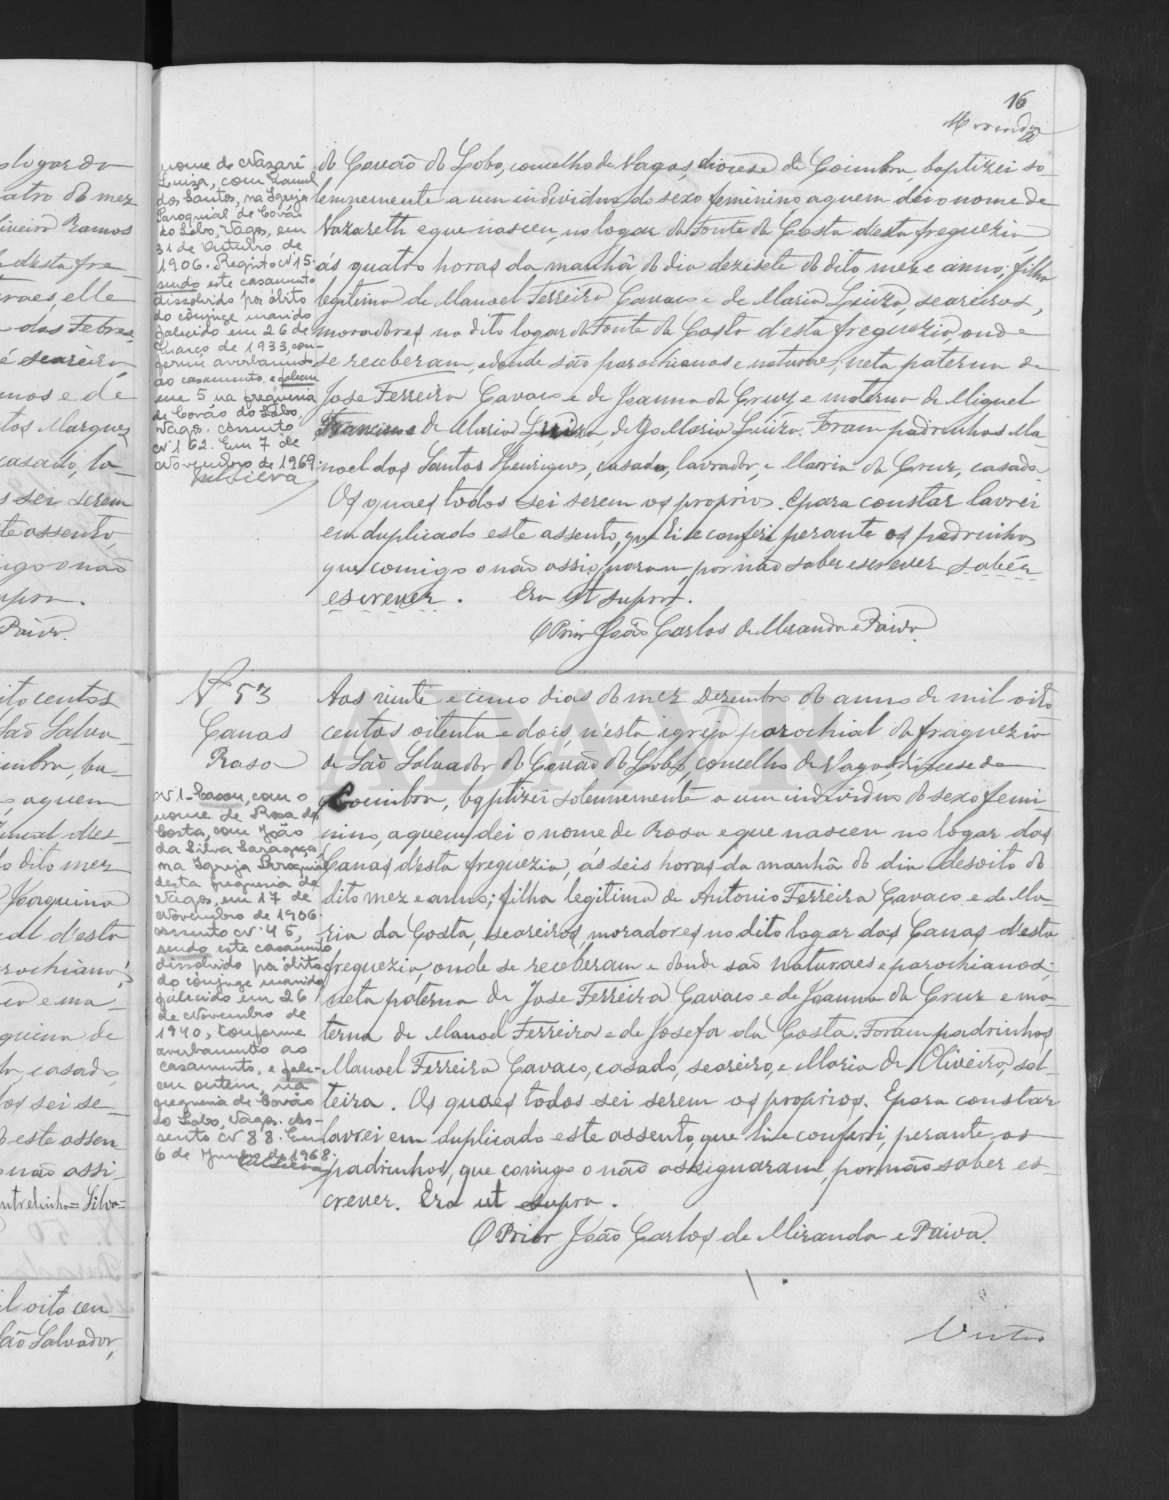 16
Miranda
nome de Nazaré
Luiza, com Manuel
dos Santos, na Igreja
Paroquial de Covão
do Lobo, Vagos, em
31 de Outubro de
1906. Registo Nº 15.
sendo este casamento
dissolvido por óbito
do cônjuge marido
falecido em 26 de
Março de 1933, con-
forme averbamento
ao casamento, e faleceu
em 5 na freguesia
de Covão do Lobo,
Vagos. assento
Nº 162. Em 7 de
Novembro de 1969.
do Covão do Lobo, concelho de Vagos, diocese de Coimbra baptizei so-
lempnemente a um individuo do sexo feminino a quem dei o nome de
Nazareth e que nasceu, no logar da Fonte da Costa d'esta freguezia
ás quatro horas da manhã do dia dezisete do dito mez e anno; filha
legitima de Manoel Ferreira Cavaco e de Maria Luiza, seareiros,
moradores no dito logar da Fonte da Costa d'esta freguezia, onde
se receberam, e donde são parochianos e naturaes, neta paterna de
Jose Ferreira Cavaco e de Joanna da Cruz e materna de Miguel
Francisco e de Maria Luiza digo Maria Luiza. Foram padrinhos Ma-
noel dos Santos Henriques, casado, lavrador, e Maria da Cruz, casada.
Os quaes todos sei serem os proprios. E para constar lavrei
em duplicado este assento, que li e conferi perante os padrinhos
que comigo o não assignaram, por não saber escrever saber
escrever. Era ut supra.
O Prior João Carlos de Miranda e Paiva.
Nº 53
Canas
Rosa
Nº 1 - Casou, com o
nome de Rosa da
Costa, com João
da Silva Saragoça,
na Igreja Paroquial
desta freguesia de
Vagos, em 17 de
Novembro de 1906.
assento Nº 45,
sendo este casamento
dissolvido por óbito
do cônjuge marido
falecido em 26
de Novembro de
1940, conforme
averbamento ao
casamento, e fale-
ceu ontem, na
freguesia de Covão
do Lobo, Vagos. As-
sento Nº 88. Em
6 de Junho de 1968.
Aos vinte e cinco dias do mez Dezembro do anno de mil oito
centos oitenta e dois, n'esta igreja parochial da freguezia
de São Salvador do Covão do Lobo, concelho de Vagos, diocese de
Coimbra, baptizei solemnemente a um individuo do sexo femi-
nino, a quem dei o nome de Rosa e que nasceu no logar das
Canas d'esta freguezia, ás seis horas da manhã do dia desoito do
dito mez e anno; filha legitima de Antonio Ferreira Cavaco e de Ma-
ria da Costa, seareiros, moradores no dito logar das Canas d'esta
freguezia, onde se receberam e donde são naturaes e parochianos;
neta paterna de Jose Ferreira Cavaco e de Joanna da Cruz e ma-
terna de Manoel Ferreira e de Josefa da Costa. Foram padrinhos
Manoel Ferreira Cavaco, casado, seareiro, e Maria de Oliveira, sol-
teira. Os quaes todos sei serem os proprios. E para constar
lavrei em duplicado este assento, que li e conferi, perante os
padrinhos, que comigo o não assignaram, por não saber es-
crever. Era ut supra.
O Prior João Carlos de Miranda e Paiva.